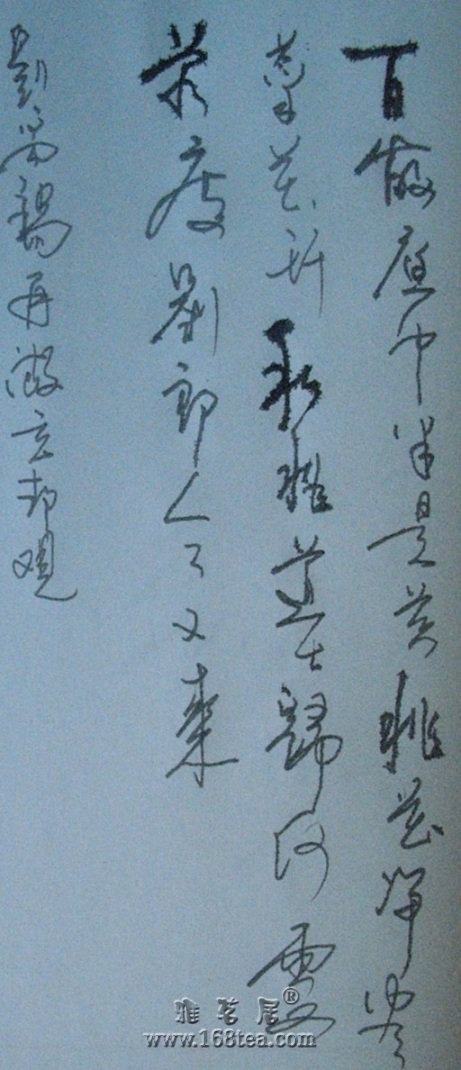 百畝庭中半是苔桃花净尽
菜花开種桃道士歸何處
前度劉郎今又来
劉禹錫再游玄都观
雅茗居®
www.168tea.com